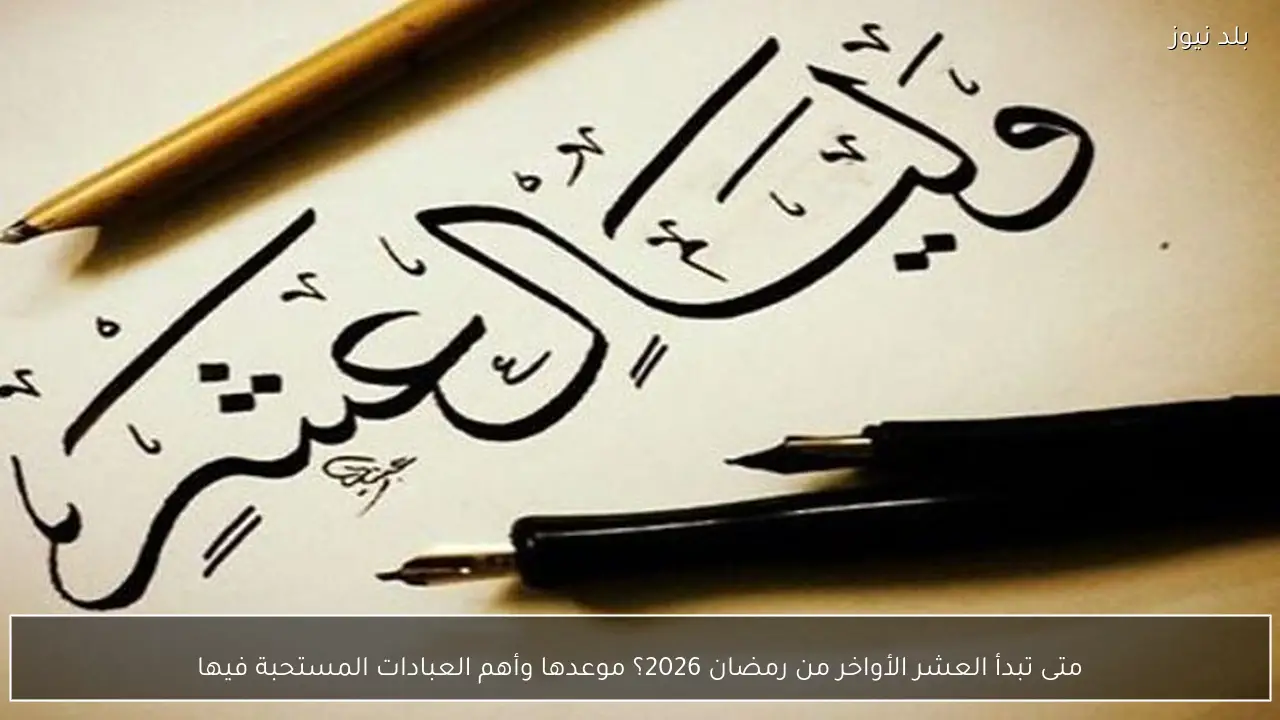 بلد نيوز
وَلَيَالٍ
عَشْرٍ
متى تبدأ العشر الأواخر من رمضان 2026؟ موعدها وأهم العبادات المستحبة فيها